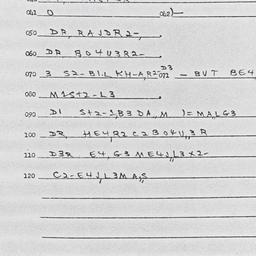 042 O 062)—
050 DR, RAJDR2-,
060 DR BO4U3R2-
070 3 S2-B1.L KH-A,R2 072 D3 — BUT BE4
080 M1S+2-L3
090 D1 S+2-1,B3 DA, M )= MA,LG3
100 DR, HE4R2 C2BO4U,,3 R
110 D3R E4,G3 ME4J,L3X2-
120 C2-E4J,L3M A,S